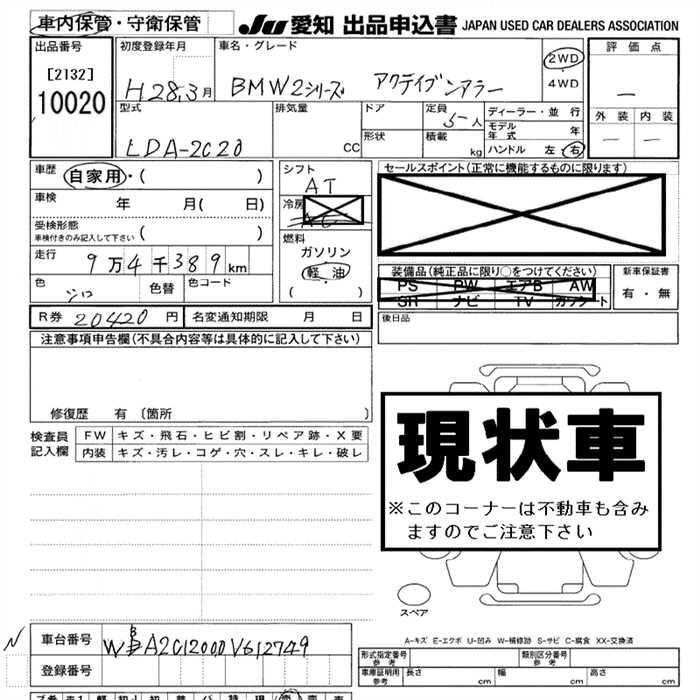 車内保管・守衛保管
JU 愛知 出品申込書 JAPAN USED CAR DEALERS ASSOCIATION
出品番号 初度登録年月 車名・グレード 2WD 評価点
[2132] H28.3月 BMW2シリーズ アクティブツアラー ・ 4WD —
10020 型式 排気量 ドア 定員 5人 ディーラー・並行 外装 内装
LDA-2C20 CC 形状 積載 kg モデル年式 年 — —
ハンドル 左・右
車歴 自家用・( ) シフト セールスポイント(正常に機能するものに限ります)
車検 年 月( 日) AT
冷房 AC
受検形態 車検付きのみ記入して下さい ( ) 燃料
走行 9万4千389km ガソリン
軽油 装備品(純正品に限り○をつけてください) 新車保証書
色 シロ 色替 色コード ・( ) PS PW エアB AW 有・無
SH ナビ TV ガソケート
R券 20420円 名変通知期限 月 日 後日品
注意事項申告欄(不具合内容等は具体的に記入して下さい)
修復歴 有〔箇所 〕
検査員記入欄 FW キズ・飛石・ヒビ割・リペア跡・X要
内装 キズ・汚レ・コゲ・穴・スレ・キレ・破レ
現状車
※このコーナーは不動車も含み
ますのでご注意下さい
スペア
A-キズ E-エクボ U-凹み W-補修跡 S-サビ C-腐食 XX-交換済
N 車台番号 WBA2C12000V612749
登録番号
形式指定番号 参考 類別区分番号 参考
車庫証明用 参考 長さ cm 幅 cm 高さ cm